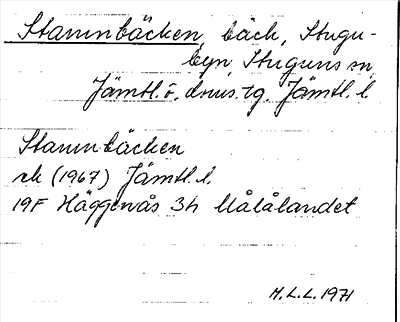 Stamnbäcken, bäck, Stugu-
byn, Stuguns sn,
Jämtl. ö. doms. tg. Jämtl. l.
Stamnbäcken
rk (1967) Jämtl. l.
19F Häggenås 3h Målålandet
H.L.L. 1971